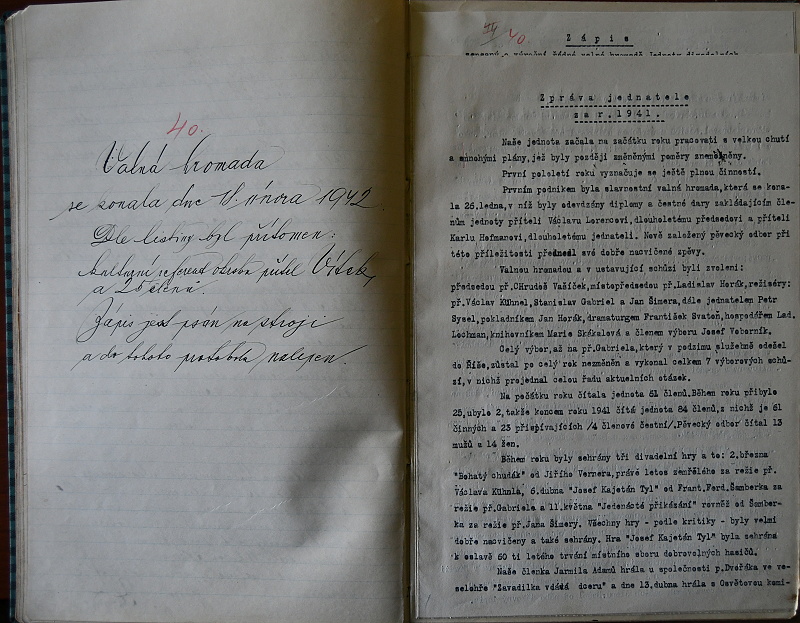 40.
Valná hromada
se konala dne 18. února 1942
Dle listiny byl přítomen:
kulturní referent okrsku přítel Vítek,
a 25 členů.
Zápis jest psán na stroji
a do tohoto protokolu nalepen.
IV 40.
Zápis
Zpráva jednatele
za r. 1941.
Naše jednota začala na začátku roku pracovati s velkou chutí
a mnohými plány, jež byly později změněnými poměry znemožněny.
První pololetí roku vyznačuje se ještě plnou činností.
Prvním podnikem byla slavnostní valná hromada, která se kona-
la 26. ledna, v níž byly odevzdány diplomy a čestné dary zakládajícím čle-
nům jednoty příteli Václavu Lorencovi, dlouholetému předsedovi a příteli
Karlu Hofmanovi, dlouholetému jednateli. Nově založený pěvecký odbor při
této příležitosti přednesl své dobře nacvičené zpěvy.
Valnou hromadou a v ustavující schůzi byli zvoleni:
předsedou př. Chrudoš Vašíček, místopředsedou př. Ladislav Horák, režiséry:
př. Václav Kühnel, Stanislav Gabriel a Jan Šimera, dále jednatelem Petr
Sysel, pokladníkem Jan Horák, dramaturgem František Svatoň, hospodářem Lad.
Lochman, knihovníkem Marie Skákalová a členem výboru Josef Voborník.
Celý výbor, až na př. Gabriela, který v podzimu služebně odešel
do Říše, zůstal po celý rok nezměněn a vykonal celkem 7 výborových schů-
zí, v nichž projednal celou řadu aktuelních otázek.
Na počátku roku čítala jednota 61 členů. Během roku přibylo
25, ubylo 2, takže koncem roku 1941 čítá jednota 84 členů, z nichž je 61
činných a 23 přispívajících /4 členové čestní/. Pěvecký odbor čítal 13
mužů a 14 žen.
Během roku byly sehrány tři divadelní hry a to: 2. března
"Bohatý chudák" od Jiřího Vernera, právě letos zemřelého za režie př.
Václava Kühnla, 6. dubna "Josef Kajetán Tyl" od Frant. Ferd. Šamberka za
režie př. Gabriele a 11. května "Jedenácté přikázání" rovněž od Šamber-
ka za režie př. Jana Šimery. Všechny hry - podle kritiky - byly velmi
dobře nacvičeny a také sehrány. Hra "Josef Kajetán Tyl" byla sehrána
k oslavě 60 ti letého trvání místního sboru dobrovolných hasičů.
Naše členka Jarmila Adamů hrála u společnosti p. Dvořáka ve ve-
selohře "Zavadilka vdává dceru" a dne 13. dubna hrála s Osvětovou komi-